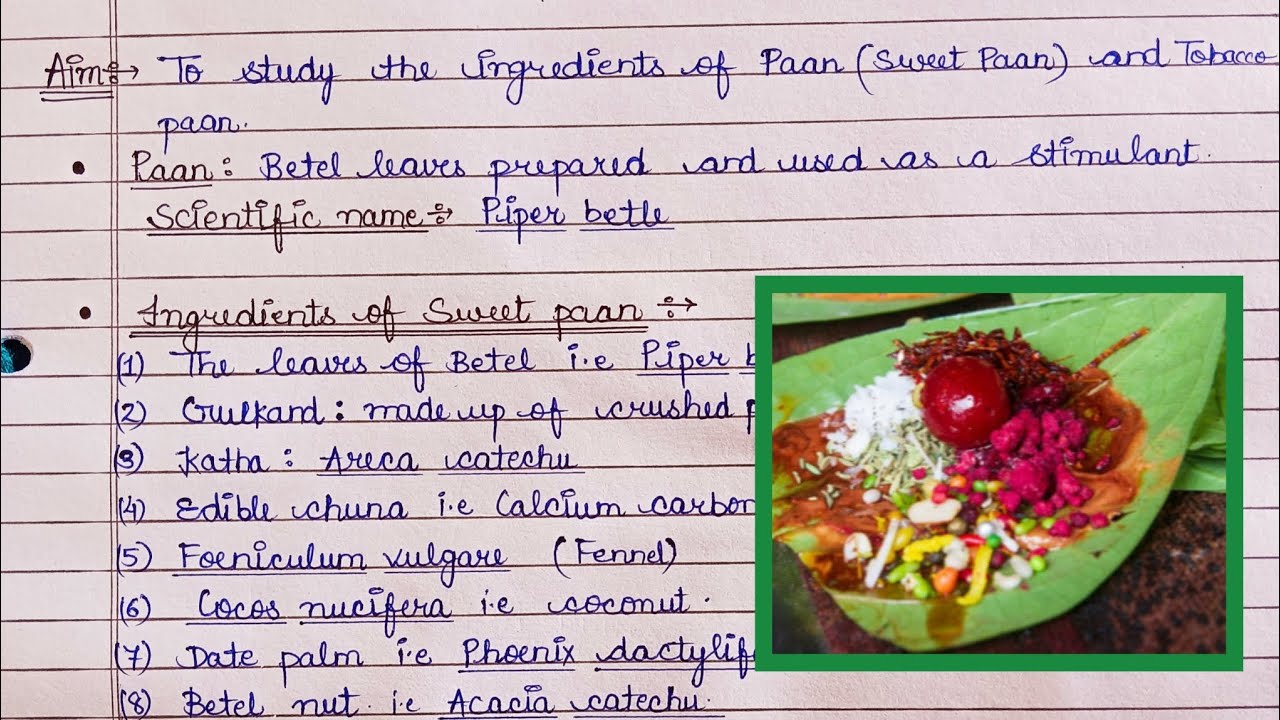 Aim:→ To study the ingredients of Paan (Sweet Paan) and Tobacco
paan.
• Paan: Betel leaves prepared and used as a stimulant.
Scientific name÷ Piper betle
• Ingredients of Sweet paan ÷→
(1) The leaves of Betel i.e Piper b
(2) Gulkand: made up of crushed p
(3) Katha: Areca catechu
(4) Edible chuna i.e Calcium carbon
(5) Foeniculum vulgare (Fennel)
(6) Cocos nucifera i.e coconut.
(7) Date palm i.e Phoenix dactylif
(8) Betel nut. i.e Acacia catechu.